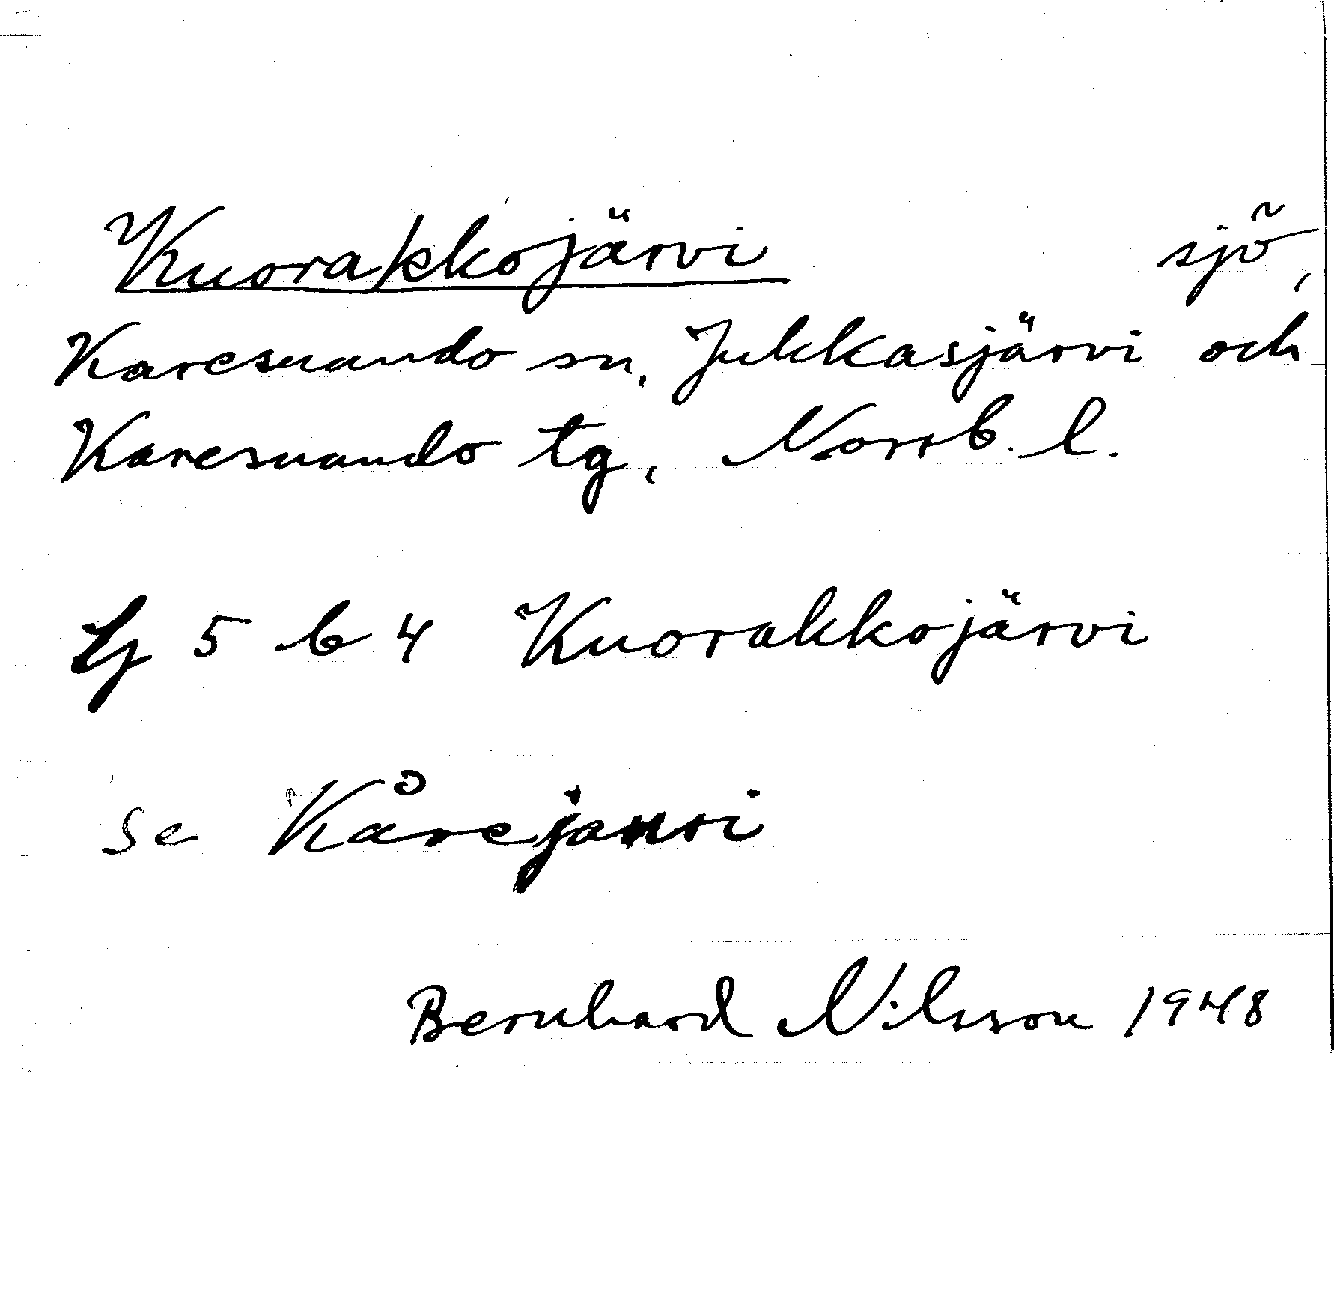 Kuorakkojärvi sjö,
Karesuando sn, Jukkasjärvi och
Karesuando tg, Norrb. l.
5 b 4 Kuorakkojärvi
se
Bernhard Nilsson 1948